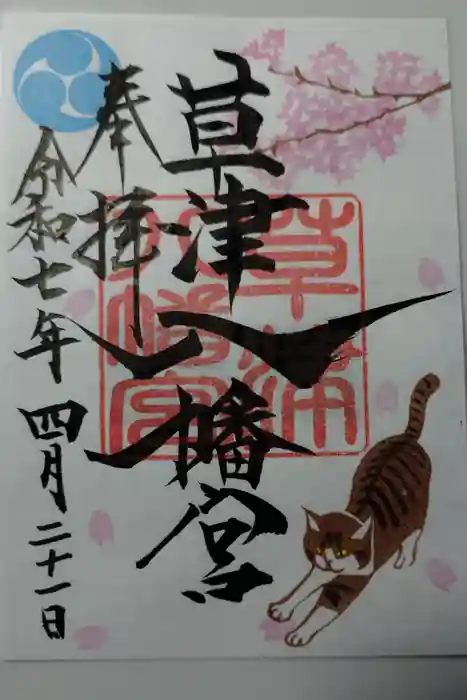 奉拝
草津八幡宮
草津
八幡宮
令和七年四月二十一日